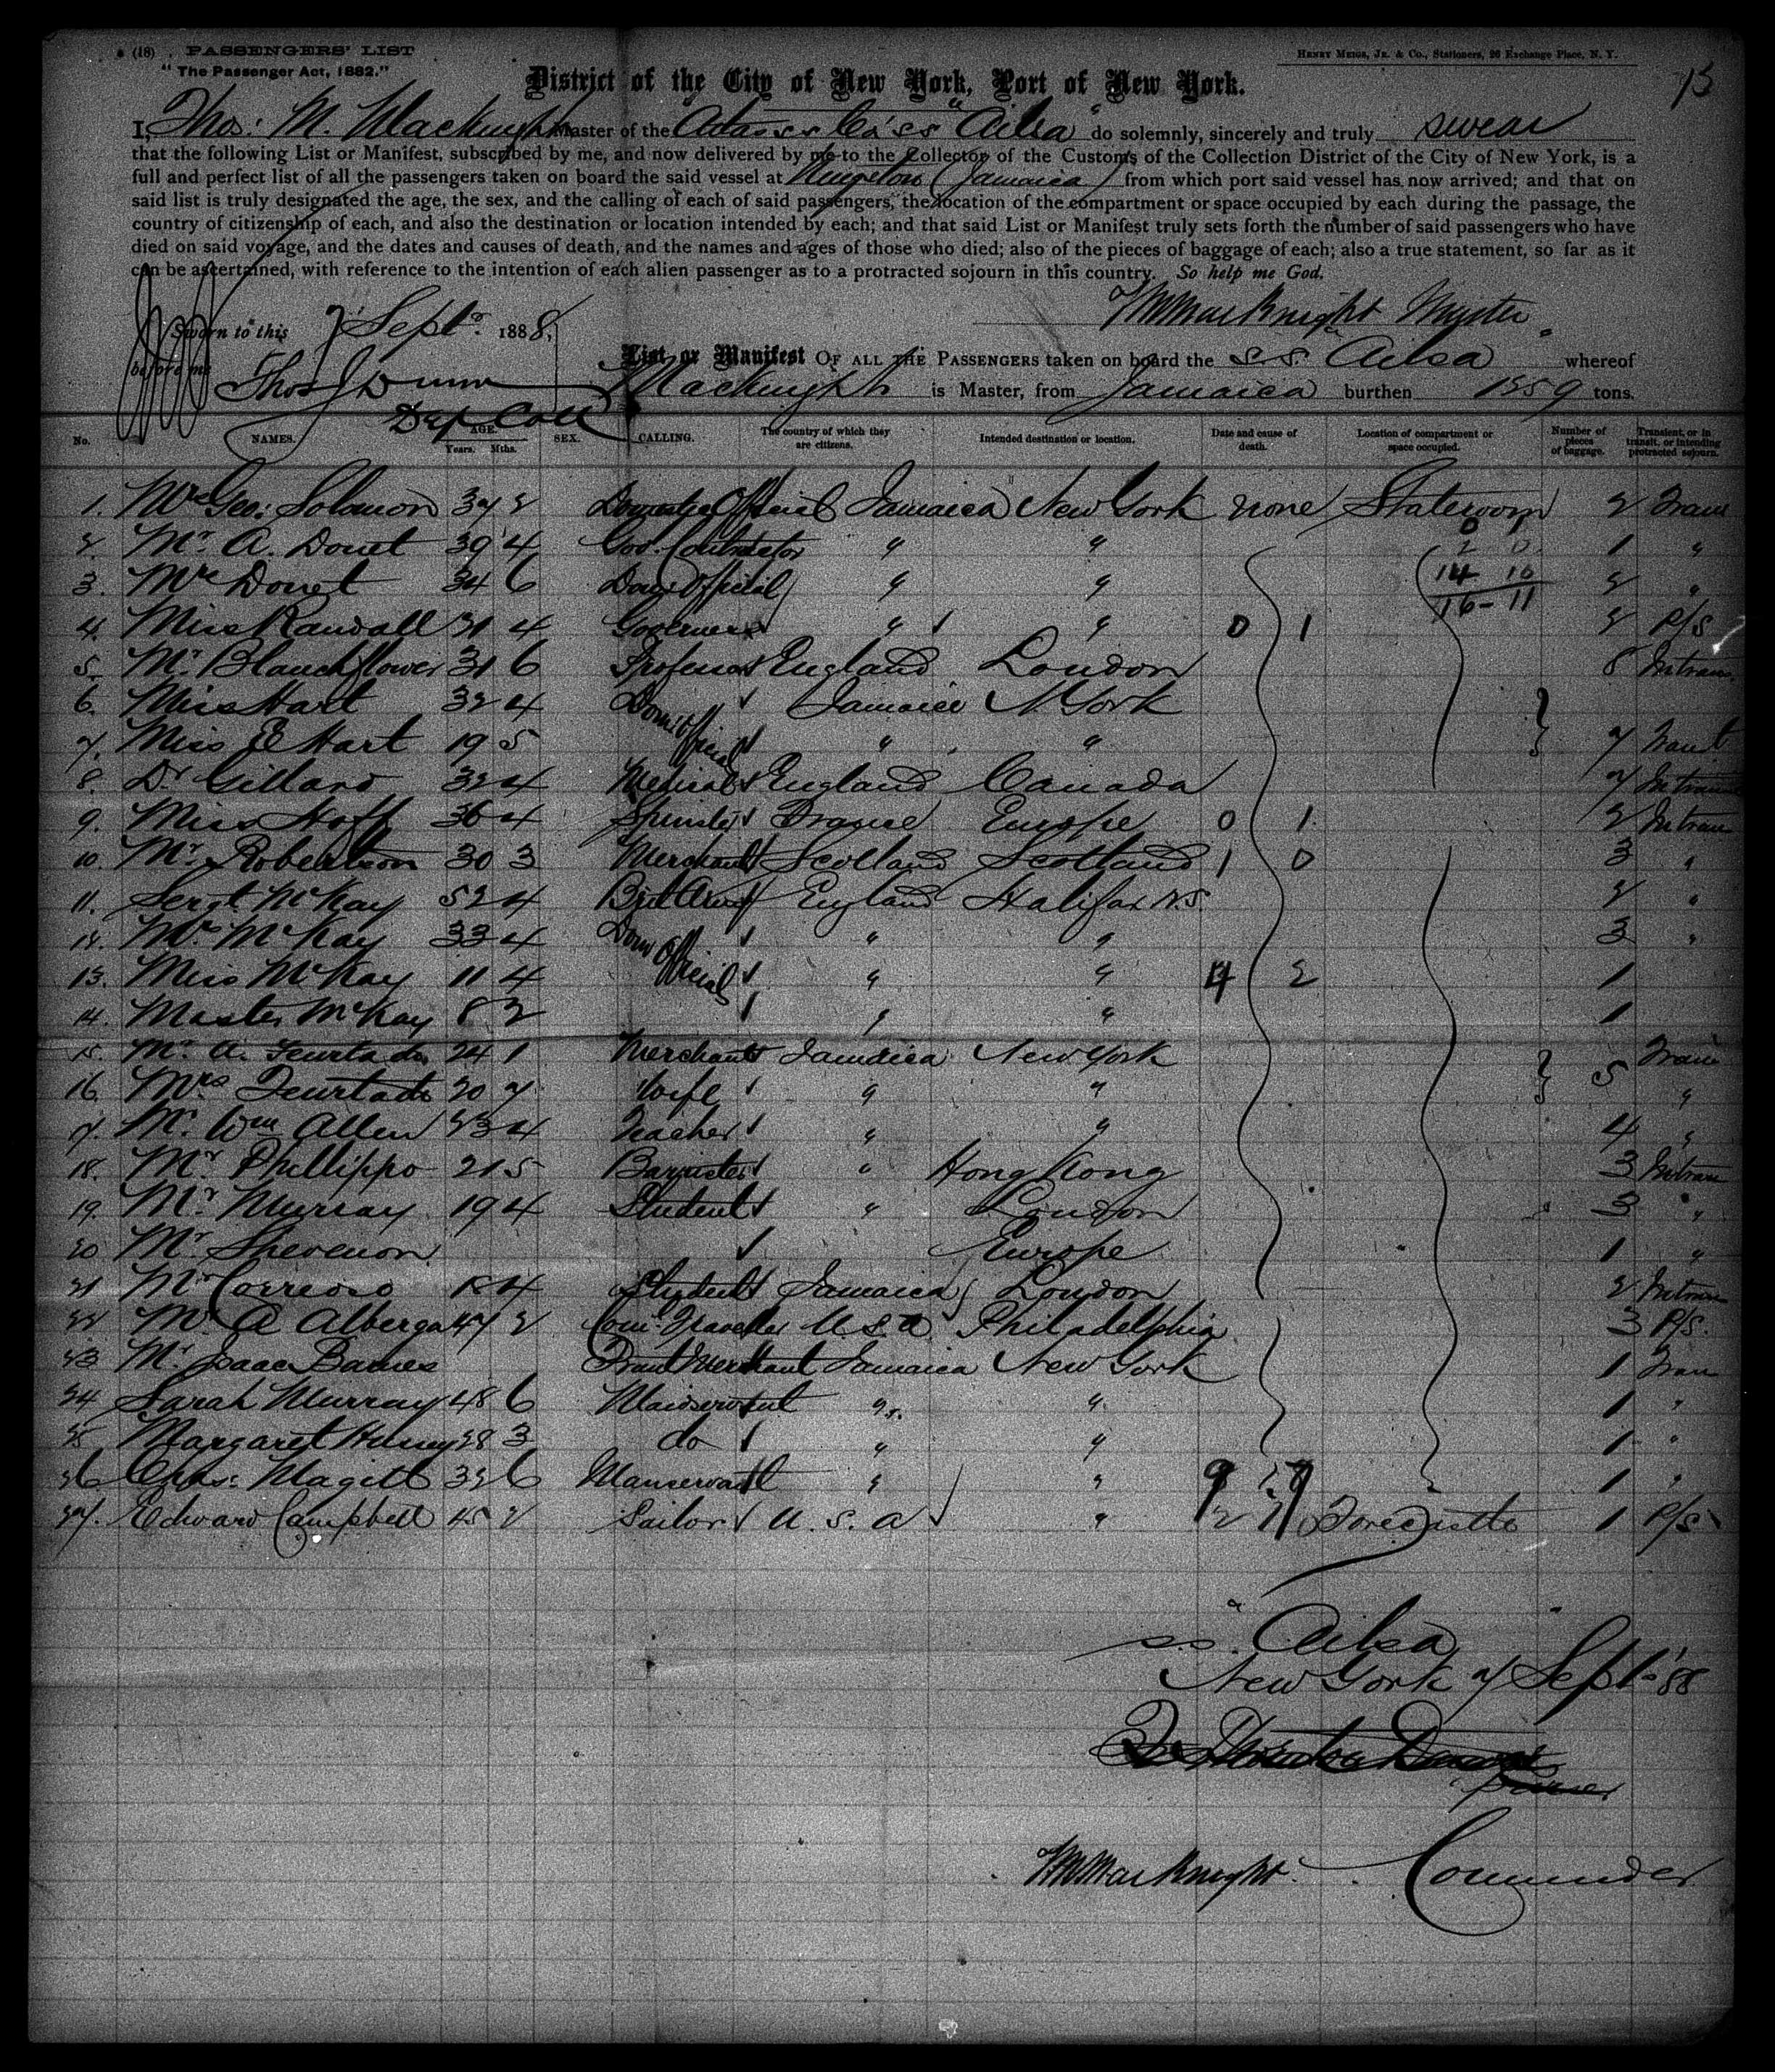 (18) PASSENGERS' LIST
"The Passenger Act, 1882."
HENRY MEIGS, JR. & CO., Stationers, 26 Exchange Place, N. Y.
District of the City of New York, Port of New York.
I, Thos: M. Macknight Master of the Atlas SS Co's ss "Ailsa" do solemnly, sincerely and truly swear
that the following List or Manifest, subscribed by me, and now delivered by me to the Collector of the Customs of the Collection District of the City of New York, is a
full and perfect list of all the passengers taken on board the said vessel at Kingston (Jamaica) from which port said vessel has now arrived; and that on
said list is truly designated the age, the sex, and the calling of each of said passengers, the location of the compartment or space occupied by each during the passage, the
country of citizenship of each, and also the destination or location intended by each; and that said List or Manifest truly sets forth the number of said passengers who have
died on said voyage, and the dates and causes of death, and the names and ages of those who died; also of the pieces of baggage of each; also a true statement, so far as it
can be ascertained, with reference to the intention of each alien passenger as to a protracted sojourn in this country. So help me God.
TM MacKnight Master
Sworn to this 7 Sept. 1888,
before me Thos J Dunn
Dep Coll
List or Manifest OF ALL THE PASSENGERS taken on board the s.s. Ailsa whereof
Macknight is Master, from Jamaica burthen tons.
No. NAMES. AGE. Years. Mths. SEX. CALLING. The country of which they are citizens. Intended destination or location. Date and cause of death. Location of compartment or space occupied. Number of pieces of baggage. Transient, or in transit, or intending protracted sojourn.
1. Geo: Solomon 37 2 Official Jamaica New York none Stateroom 2 Tran
2. Mr. A. Donet 39 4 Gov. Contractor " " 1 "
3. Donet 34 6 Dom Official " " 2 "
14 10
16-11
4. Miss Randall 31 4 Governess " " 0 1 2 P/S
5. Mr Blanchflower 31 6 Professor England London 8 Intran
6. Miss Hart 32 4 Dom Official Jamaica N York
7. Miss E Hart 19 5 " " 7 Trant
8. Dr Gillard 32 4 Medical England Canada 7 Intran
9. Miss Hoff 36 4 Spinster France Europe 0 1 2 Intran
10. Mr. Robertson 30 3 Merchant Scotland Scotland 1 0 3 "
11. Sergt. McKay 52 4 Brit Army England Halifax N.S. 2 "
12. Mrs McKay 33 4 Dom Official " " 3 "
13. Miss McKay 11 4 " " 4 2 1
14. Master McKay 8 2 " " 1
15. Mr. A. Feurtado 24 1 Merchant Jamaica New York Tran
16. Mrs Feurtado 20 7 Wife " " 5 "
17. Mr. Wm Allen 23 4 Teacher " " 4 "
18. Mr Phillippo 21 5 Barrister " Hong Kong 3 Intran
19. Mr. Murray 19 4 Student " London 3 "
20 Mr Europe 1 "
21 Mr Correoso 18 4 Student Jamaica London 2 Intran
22 Mr A Alberga 47 2 Com: Traveller U.S.A. Philadelphia 3 P/S.
23 Mr. Isaac Barnes Fruit Merchant Jamaica New York 1 Tran
24 Sarah Murray 48 6 Maidservant " " 1 "
25 Margaret 28 3 do " " 1 "
26 Chas: Magill 32 6 Manservant " " 9 1 "
27. Edward Campbell 45 2 Sailor U.S.A " Forecastle 1 P/S
s.s. "Ailsa"
New York 7 Sept. '88
Purser
TM MacKnight. Commander